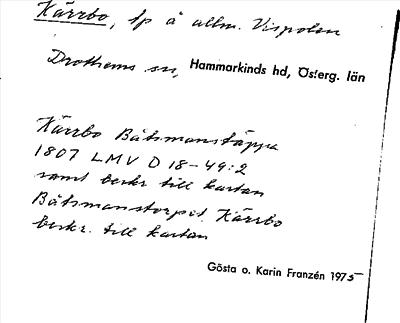 Kärrbo, tp å allm. Vispolen
Drothems sn, Hammarkinds hd, Österg. län
Kärrbo Båtsmanstäppa
1807 LMV D 18-49:2
samt beskr till kartan
Båtsmanstorpet Kärrbo
beskr. till kartan
Gösta o. Karin Franzén 1975